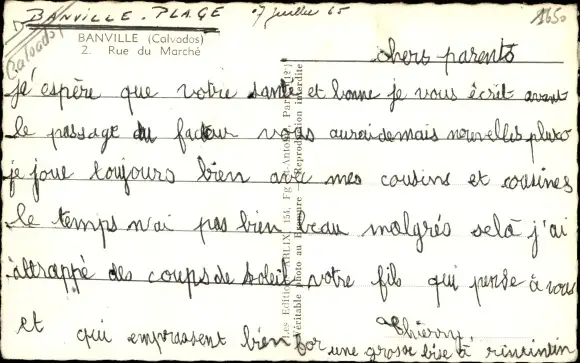 BANVILLE-PLAGE
7 juillet 65
1650
(Calvados)
BANVILLE (Calvados)
2. Rue du Marché
chers parents
j'espère que votre santé et bonne je vous écrit avant
le passage du facteur vous aurai de mais nouvelles plus
je joue toujours bien avec mes cousins et cousines
le temps n'ai pas bien beau malgrés selà j'ai
attrappé des coups de soleil votre fils qui pense à vous
et qui emprassent bien for
Thierry
une grosse bise à rintintin
Véritable photo au Bromure - Reproduction interdite